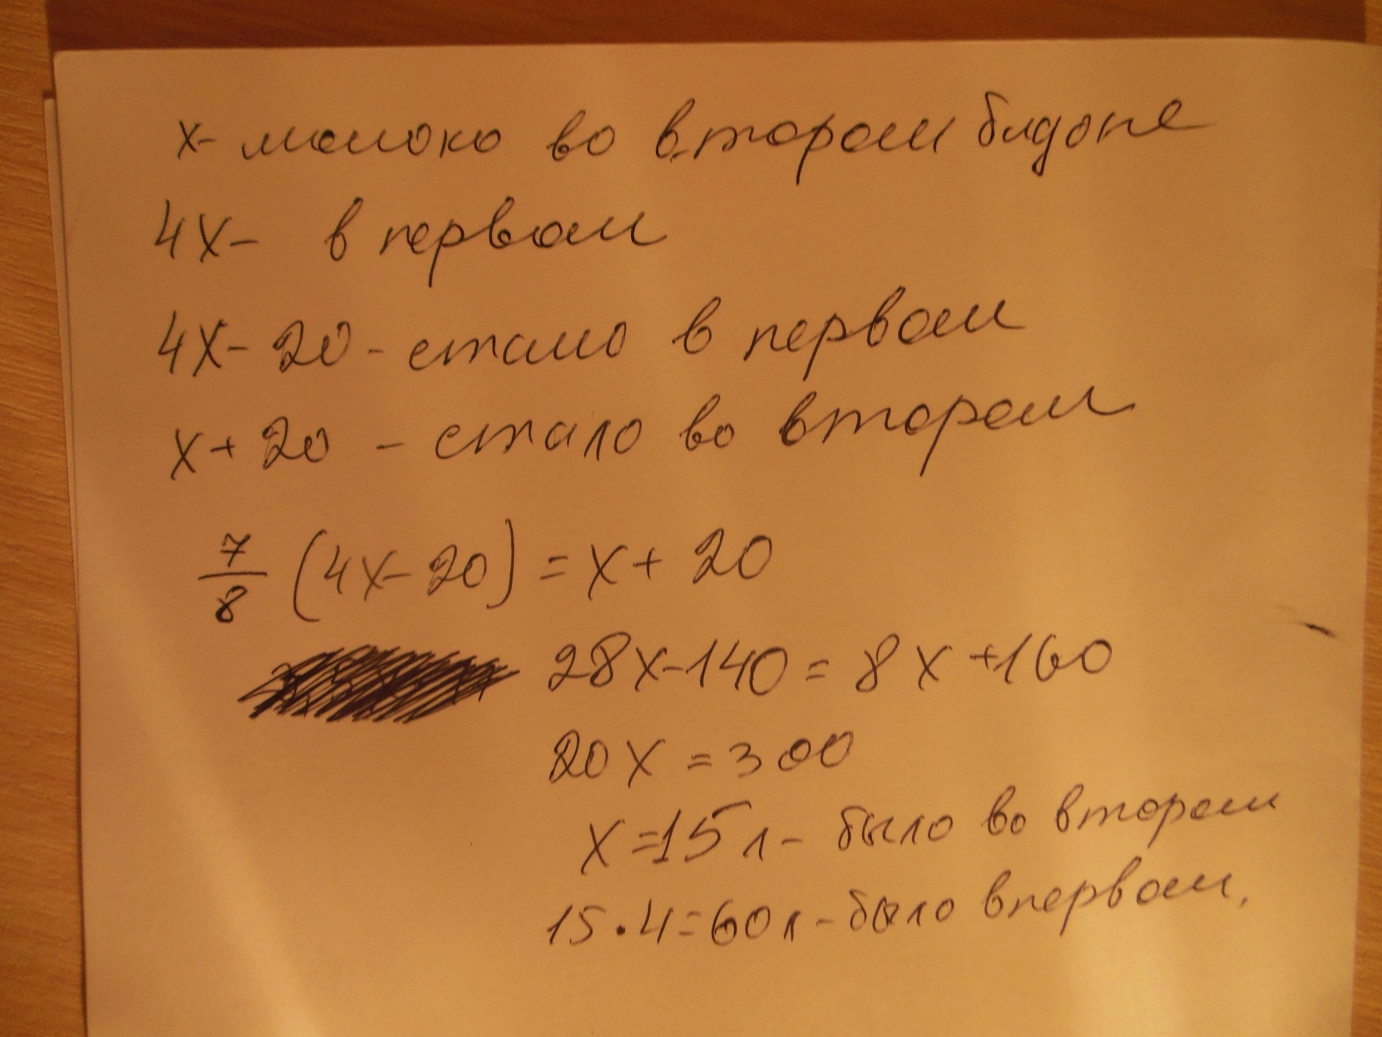 x- молоко во втором бидоне
4x- в первом
4x-20 - стало в первом
x+20 - стало во втором
7/8 (4x-20) = x+20
28x-140 = 8x+160
20x = 300
x=15 л - было во втором
15·4=60л - было в первом.